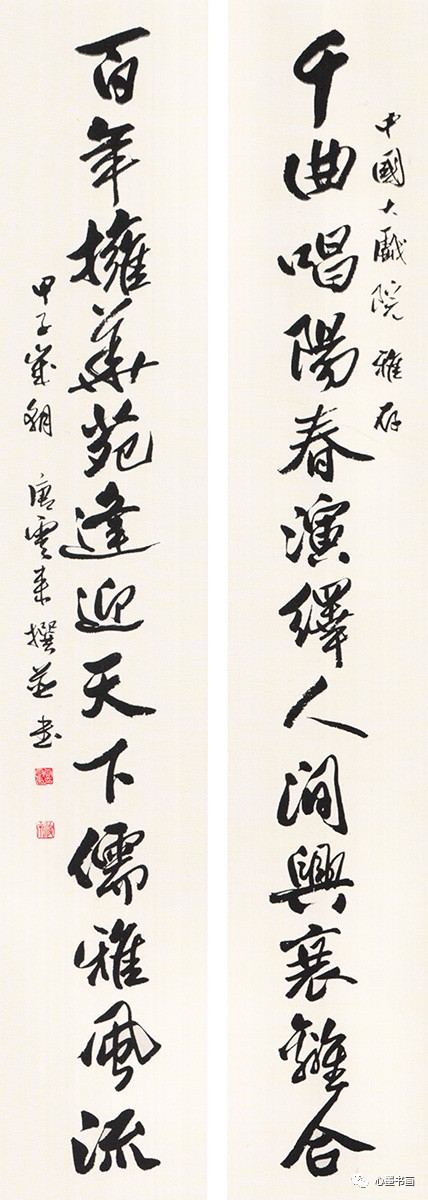 中國大戲院 雅存
千曲唱陽春演繹人間興衰離合
百年擁華苑逢迎天下儒雅風流
甲子歲 唐雲來撰並書
心墨书画